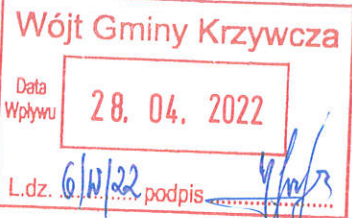 Wójt Gminy Krzywcza
Data
Wpływu
28. 04. 2022
L.dz. 6/W/22 podpis